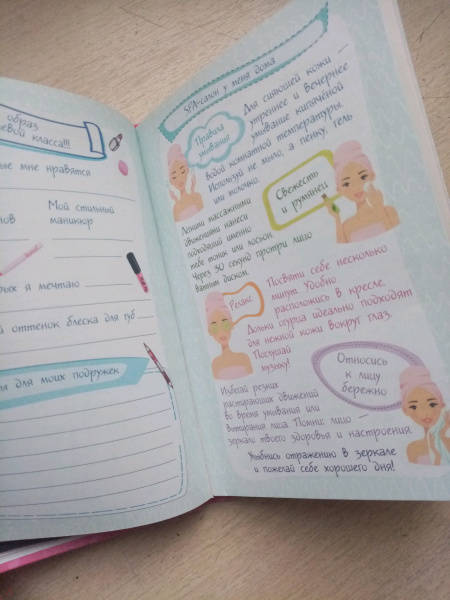 образ
евой класса!!!
ые мне нравятся
Мой стильный
нов
маникюр
ых я мечтаю
й оттенок блеска для губ
для моих подружек
SPA-салон у меня дома
Правила
умывания
Для сияющей кожи —
утреннее и вечернее
умывание кипячёной
водой комнатной температуры.
Используй не мыло, а пенку, гель
или молочко.
Свежесть
и румянец
Лёгкими массажными
движениями нанеси
подходящий именно
тебе тоник или лосьон.
Через 30 секунд протри лицо
ватным диском.
Релакс
Посвяти себе несколько
минут. Удобно
расположись в кресле.
Дольки огурца идеально подходят
для нежной кожи вокруг глаз.
Послушай
музыку!
Относись
к лицу
бережно
Избегай резких
растирающих движений
во время умывания или
вытирания лица. Помни: лицо —
зеркало твоего здоровья и настроения.
Улыбнись отражению в зеркале
и пожелай себе хорошего дня!